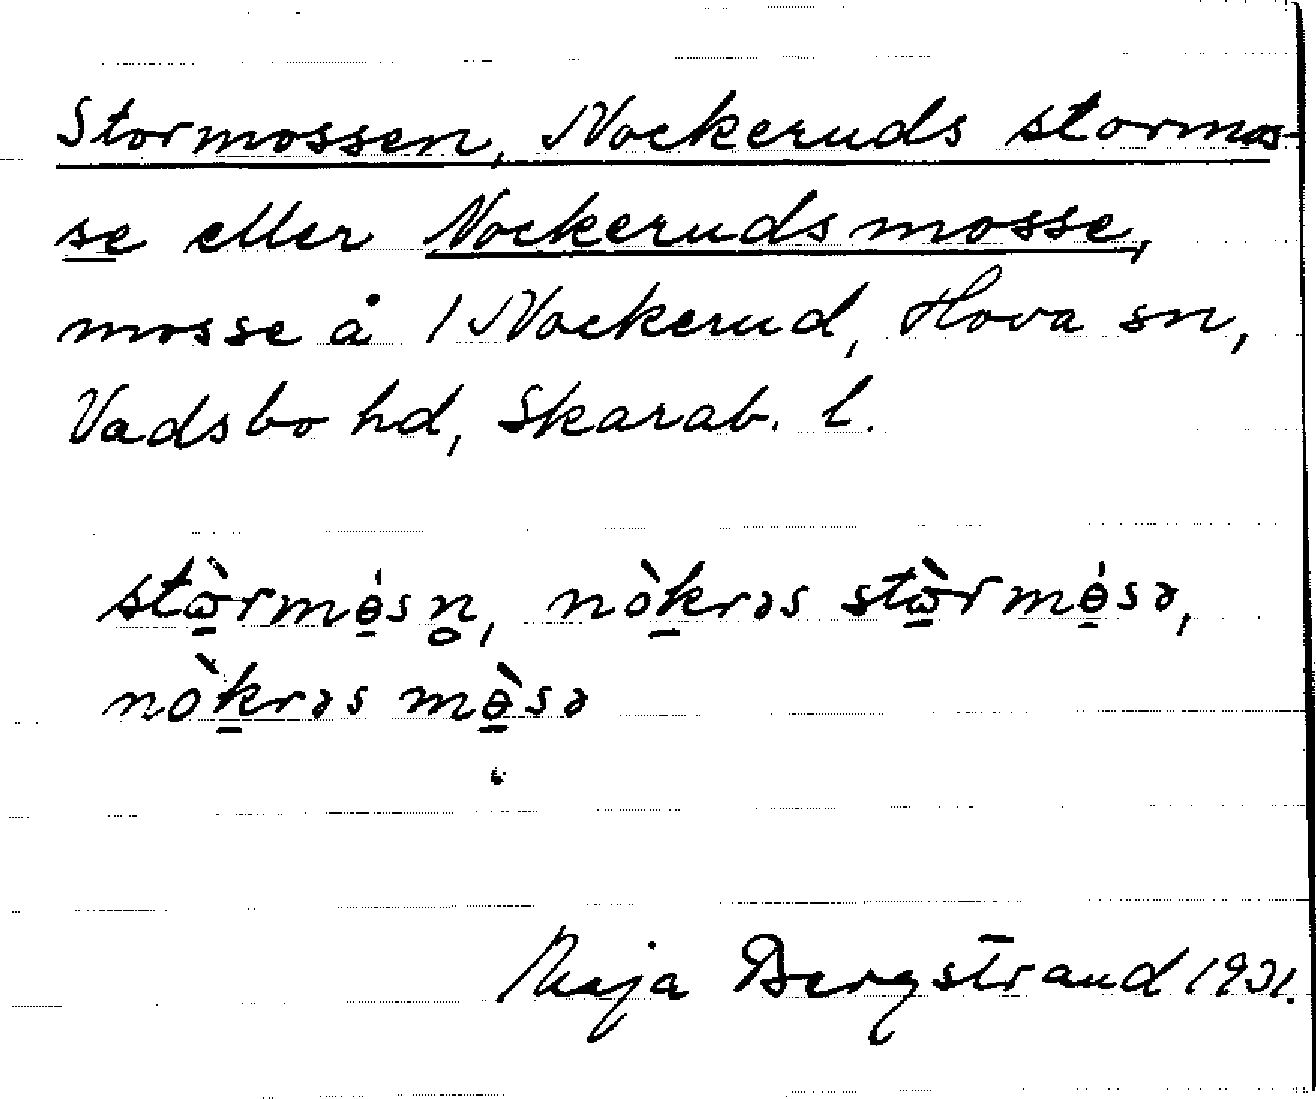 Stormossen, Nockeruds stormos-
se eller Nockerudsmosse,
mosse å 1 Nockerud, Hova sn,
Vadsbo hd, Skarab. l.
stὼrmɵ́sn̥, nòkrəs stὼrmɵ́sə,
nòkrəs mɵ̀sə
Maja Bergstrand 1931.